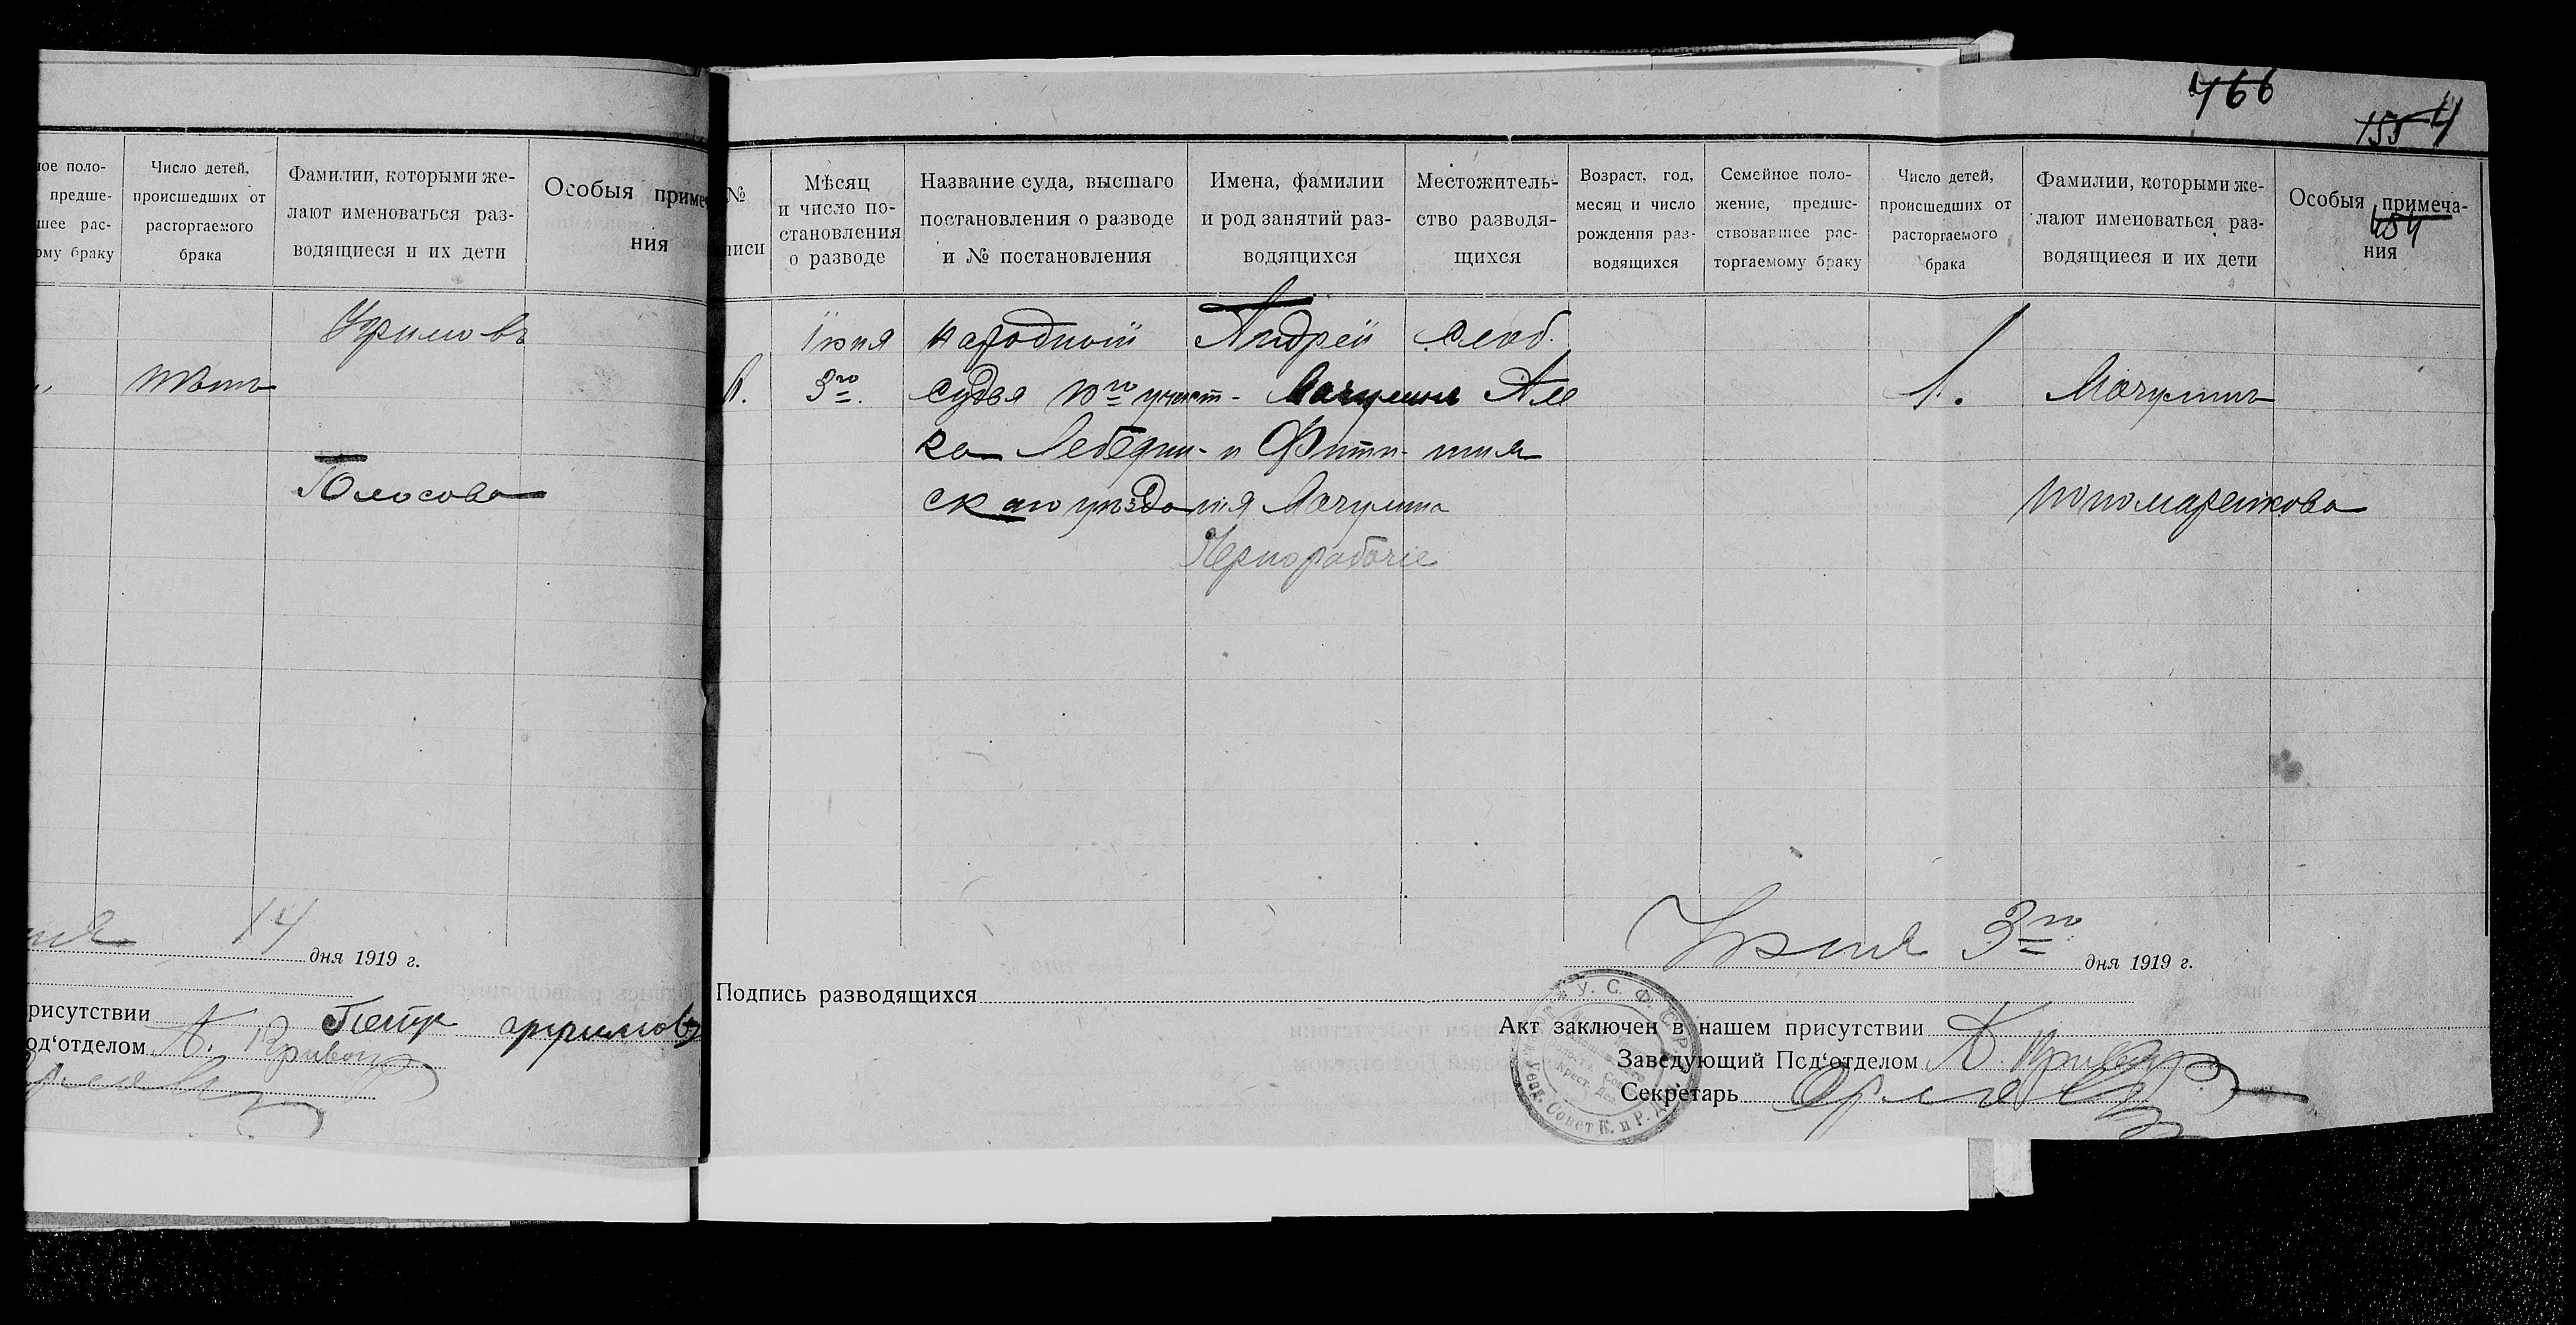 ное поло-
предше-
шее рас-
ому браку
Число детей,
происшедших от
расторгаемого
брака
Фамилии, которыми же-
лают именоваться раз-
водящиеся и их дети
Особыя приме
ния
нѣтъ
дня 1919 г.
14
рисутствии
од‘отделом
Петр
766
155 4
№
писи
Мѣсяц
и число по-
становления
о разводе
Название суда, высшаго
постановления о разводе
и № постановления
Имена, фамилии
и род занятий раз-
водящихся
Местожитель-
ство разводя-
щихся
Возраст, год,
месяц и число
рождения раз-
водящихся
Семейное поло-
жение, предше-
ствовавшее рас-
торгаемому браку
Число детей,
происшедших от
расторгаемого
брака
Фамилии, которыми же-
лают именоваться раз-
водящиеся и их дети
Особыя примеча-
ния
Іюня
3го
народный
судья участ-
ка Лебедин-
скаго уѣзда
Андрей
Мачулин
и Фити-
нія Мачулина
Чернорабочіе
слоб.
1.
Мачулинъ
Пономаренкова
Іюня 3го дня 1919 г.
Подпись разводящихся
Акт заключен в нашем присутствии
Заведующий Под‘отделом
Секретарь
У. С. Ф. С. Р.
Уезд. Совет К. и Р. Д.